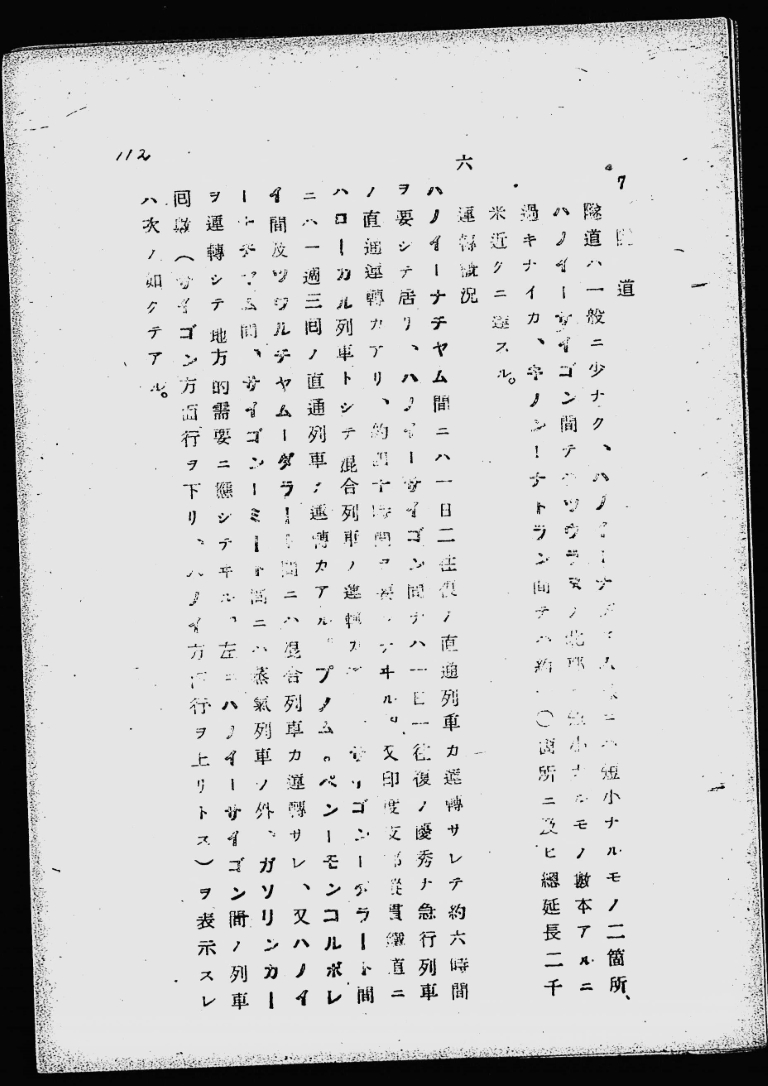 112
7 隧道
隧道ハ一般ニ少ナク、ハノイーナチヤム ニハ短小ナルモノ二箇所、
ハノイーサイゴン間テハツウラヌノ北 短小ナルモノ數本アルニ
過キナイカ、キノンーナトラン間テハ約 〇箇所ニ及ヒ總延長二千
米近クニ達スル。
六 運轉概況
ハノイーナチヤム間ニハ一日二往復ノ直通列車カ運轉サレテ約六時間
ヲ要シテ居リ、ハノイーサイゴン間ナハ一日一往復ノ優秀ナ急行列車
ノ直通運轉カアリ、約四十時間ヲ要シテヰル。又印度支那縱貫鐵道ニ
ハローカル列車トシテ混合列車ノ運轉カ サイゴンーダラート間
ニハ一週三回ノ直通列車ノ運轉カアル。プノム。ペンーモンコルボレ
イ間及ツウルチヤムーダラート間ニハ混合列車カ運轉サレ、又ハノイ
ーナチヤム間、サイゴンーミート間ニハ蒸氣列車ノ外、ガソリンカー
ヲ運轉シテ地方的需要ニ應シテヰル、左ニハノイーサイゴン間ノ列車
回數（サイゴン方面行ヲ下リ、ハノイ方面行ヲ上リトス）ヲ表示スレ
ハ次ノ如クテアル。